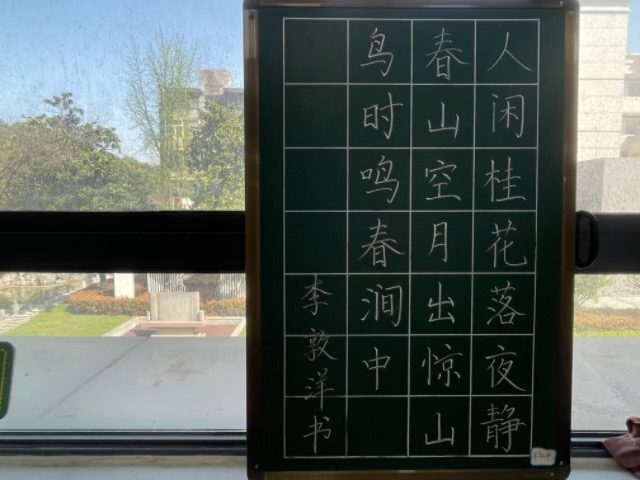 人闲桂花落夜静
春山空月出惊山
鸟时鸣春涧中
李敦洋书